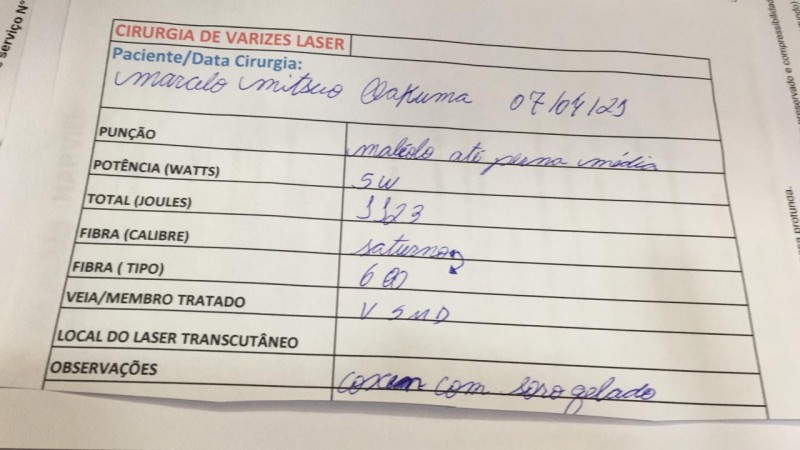 serviço Nº
CIRURGIA DE VARIZES LASER
Paciente/Data Cirurgia:
Marcelo Mitsuo 07/04/25
PUNÇÃO maléolo até perna média
POTÊNCIA (WATTS) 5W
TOTAL (JOULES) 1123
FIBRA (CALIBRE) saturno
FIBRA ( TIPO) 600
VEIA/MEMBRO TRATADO V SMD
LOCAL DO LASER TRANSCUTÂNEO
OBSERVAÇÕES com soro gelado
reservado e compressibilidad
sa profunda.